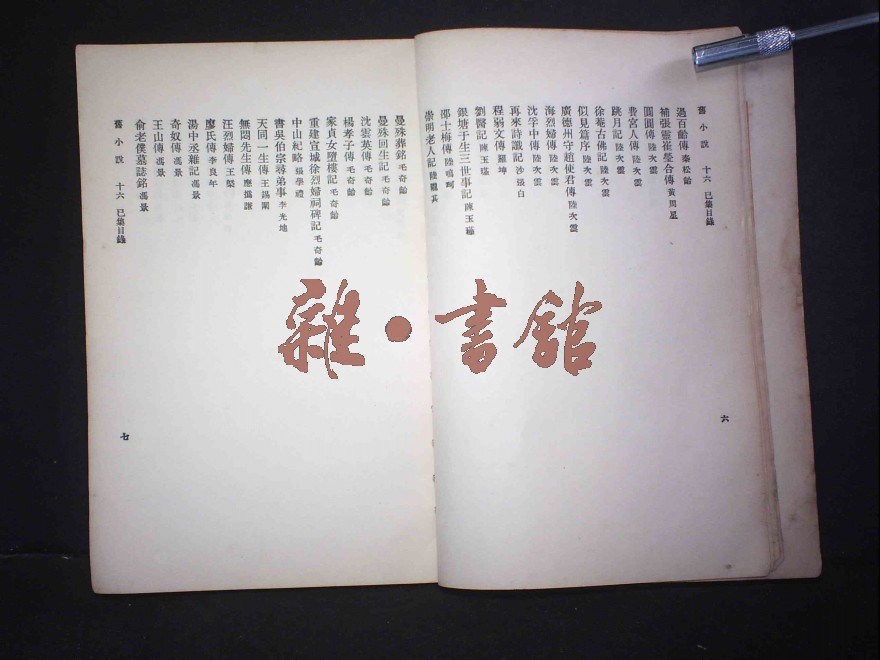 舊小說 十六 已集目錄
過百齡傳 秦松齡
補張靈崔瑩合傳 黃周星
圓圓傳 陸次雲
費宮人傳 陸次雲
跳月記 陸次雲
徐菴古佛記 陸次雲
似見篇序 陸次雲
廣德州守趙使君傳 陸次雲
海烈婦傳 陸次雲
沈孚中傳 陸次雲
再來詩讖記 沙張白
程弱文傳 羅坤
劉醫記 陳玉璂
銀塘于生三世事記 陳玉璂
邵士梅傳 陸鳴珂
崇明老人記 陸隴其
六
曼殊葬銘 毛奇齡
曼殊回生記 毛奇齡
沈雲英傳 毛奇齡
楊孝子傳 毛奇齡
家貞女墮樓記 毛奇齡
重建宣城徐烈婦祠碑記 毛奇齡
中山紀略 張學禮
書吳伯宗尋弟事 李光地
天同一生傳 王錫闡
無悶先生傳 應撝謙
汪烈婦傳 王槩
廖氏傳 李良年
湯中丞雜記 馮景
奇奴傳 馮景
王山傳 馮景
俞老僕墓誌銘 馮景
舊小說 十六 已集目錄
七
雜·書館